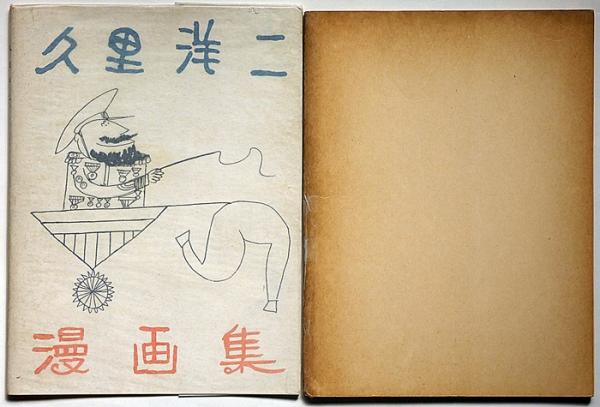 久里洋二
漫画集